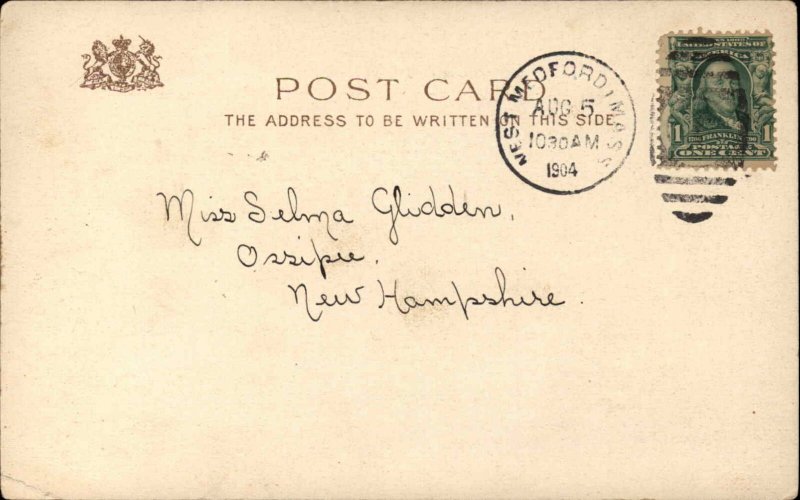 POST CARD
THE ADDRESS TO BE WRITTEN ON THIS SIDE
WEST MEDFORD, MASS
AUG 5
1030AM
1904
UNITED STATES OF
AMERICA
1 FRANKLIN 1
POSTAGE
ONE CENT
Miss Selma Glidden,
Ossipee,
New Hampshire.